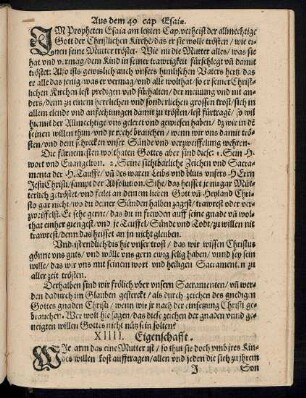 Aus dem 49 cap Esaiæ.
IM Propheten Esaia am letzten Cap. verheist der allmechtige
Gott der Christlichen Kirche / das er sie wolle trösten / wie
einen seine Mutter tröstet. Wie nu die Mutter alles / was sie
hat und vermag / dem Kind in seiner trawrigkeit fürschlegt uñ damit
tröstet: Also ists gewislich auch unsers himlischen Vaters hertz / das
er alle das jenig / was er vermag / und alle wolthat / so er seiner Christlichen
Kirchen
den zu einem herrlichen und sonderlichen grossen trost / sich in
allem elende und anfechtungen damit zu trösten / lest fürtrage /
hiemit der Allmechtige uns geleret und gewehnet haben / wie
wöllen thun / und recht brauchen / wenn wir uns damit
trösten / und dem schrecken unser Sünde und verzweiffelung wehren.
Die fürnemsten wolthaten Gottes aber sind diese: 1. Sein H.
wort und Evangelion. 2. Seine sichtbarliche Zeichen und Sacramenta
der H. Tauffe / uñ des waren Leibs und bluts unsers HErrn
Jesu Christi / sampt der Absolution.
getröstet / und feilet an deinem lieben Gott uñ Heyland Christo
gar nicht / wo du deiner Sünden halben zagest / trawrest oder verzweiffelst.
Er sehe gerne / das du in frewden auff seine gnade uñ wolthat
einher giengest / und je Teuffel / Sünde und Todt / zu willen nit
trawrest / denn das heisset an jn nicht glauben.
Und ist endlich dis hie unser trost / das wir wissen Christus
gönne uns guts / und wölle uns gern ewig selig haben / und sey sein
wille / das wir uns mit seinem wort und heiligen Sacrament / in zu
aller zeit trösten.
Derhalben sind wir frölich uber unsern Sacramenten / uñ werden
dadurch im Glauben gesterckt / als durch zeichen des gnedigen
Gottes gnaden Christi / wenn wir je nach der einsetzung Christi gebrauchen.
Wer wolt hie sagen / das diese zeichen der gnaden und geneigten
willen Gottes nicht nütz sein solten?
XIIII. Eigenschafft.
WIe arm das eine Mutter ist / so thut sie doch umb ires Kindes
willen kost aufftragen / allen und jeden die sich zu ihrem
J Son